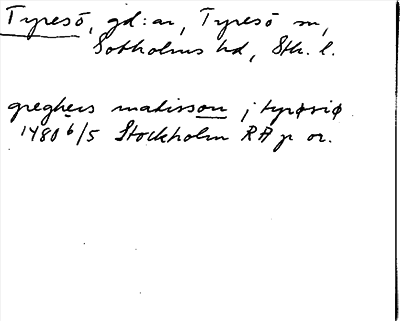 Tyresö, gd:ar, Tyresö sn,
Sotholms hd, Sth. l.
greghers matisson i tyrøsiø
1480 6/5 Stockholm RA p or.